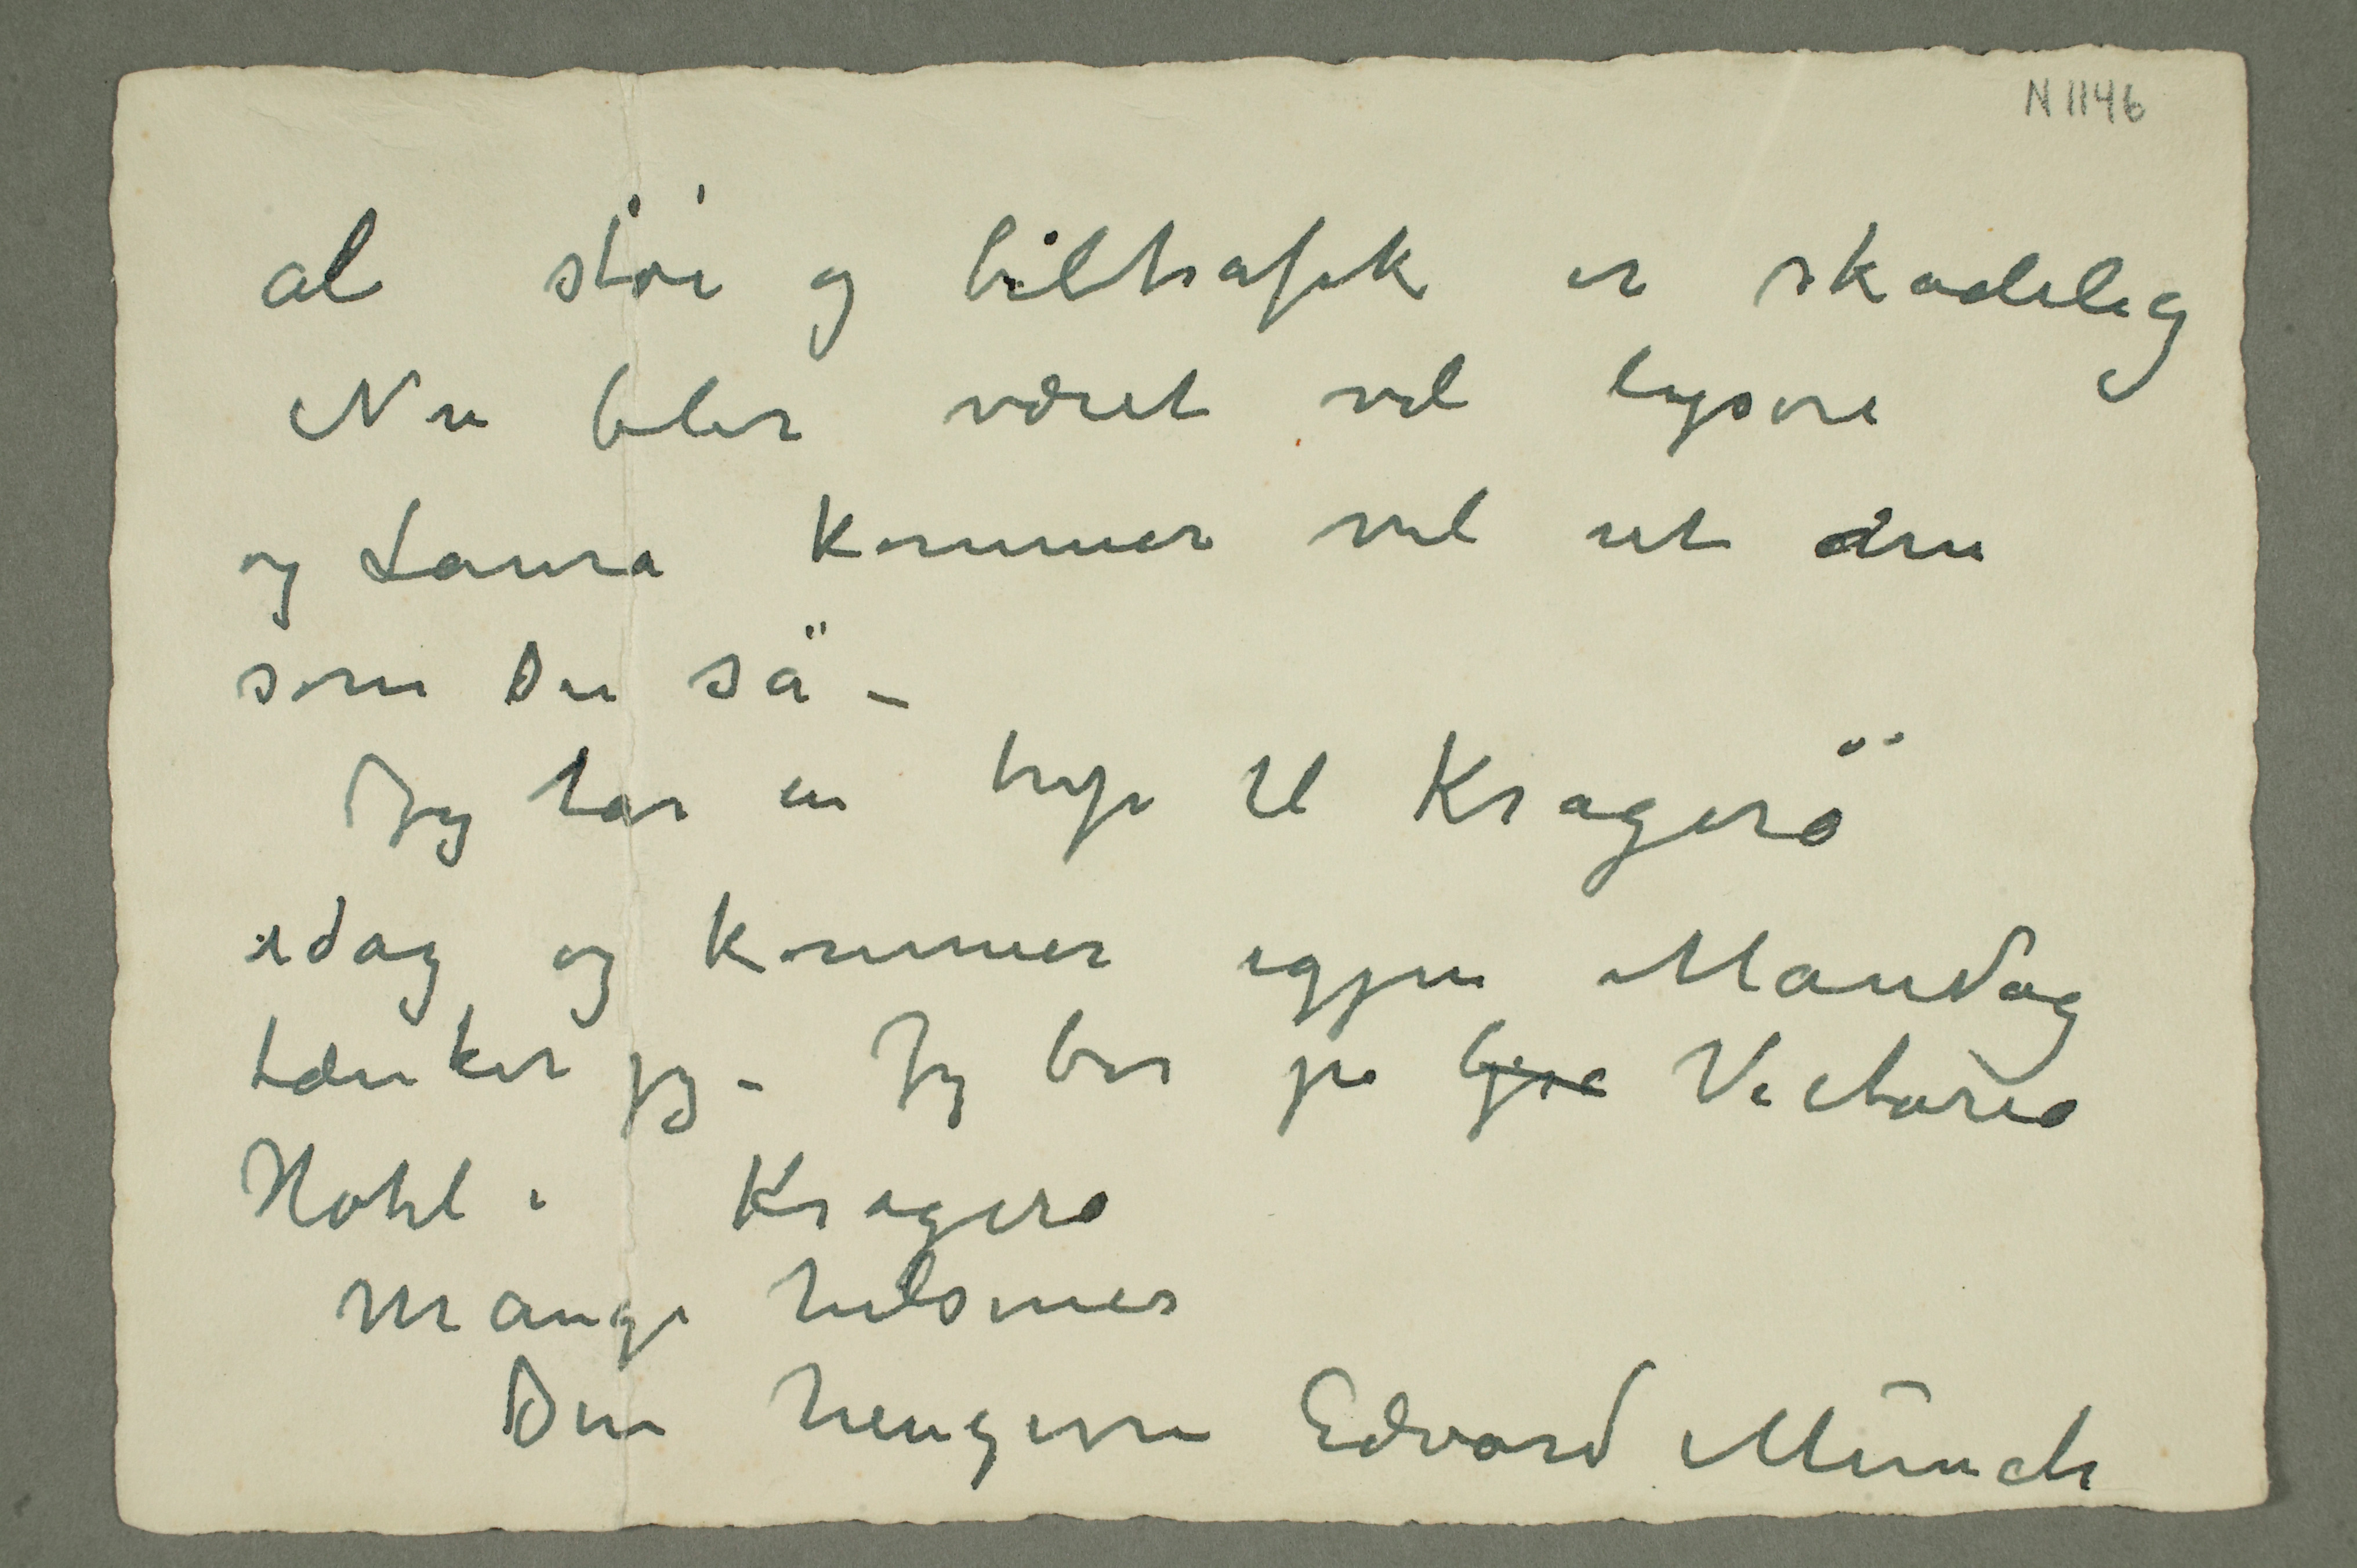 N 1146
al støi og biltrafik er skadelig
Nu blir været vel lysere
og Laura kommer vel ut den
som Du sä –
Jeg tar en tryp til Kragerö
idag og kommer igjen Mandag
tænker jeg – Jeg bor på Victoria
Hotel i Kragerø
Mange hilsener
Din hengivne Edvard Munch